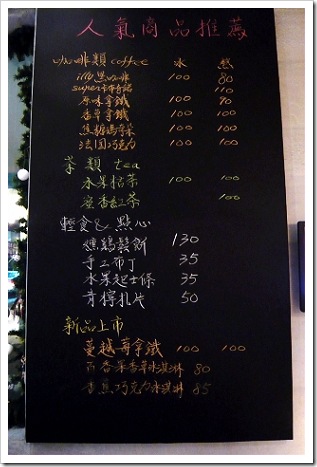 人氣商品推薦
咖啡類 coffee 冰 熱
illy黑咖啡 100 80
super卡布奇諾 110
原味拿鐵 100 90
香草拿鐵 100 100
焦糖瑪琪朵 100 100
法國巧克力 100 100
茶類 tea
水果粒茶 100 100
蜜香紅茶 100
輕食&點心
燻鷄鬆餅 130
手工布丁 35
水果起士條 35
芎檸扎片 50
新品上市
蔓越莓拿鐵 100 100
百香果香草冰淇淋 80
香蕉巧克力冰淇淋 85